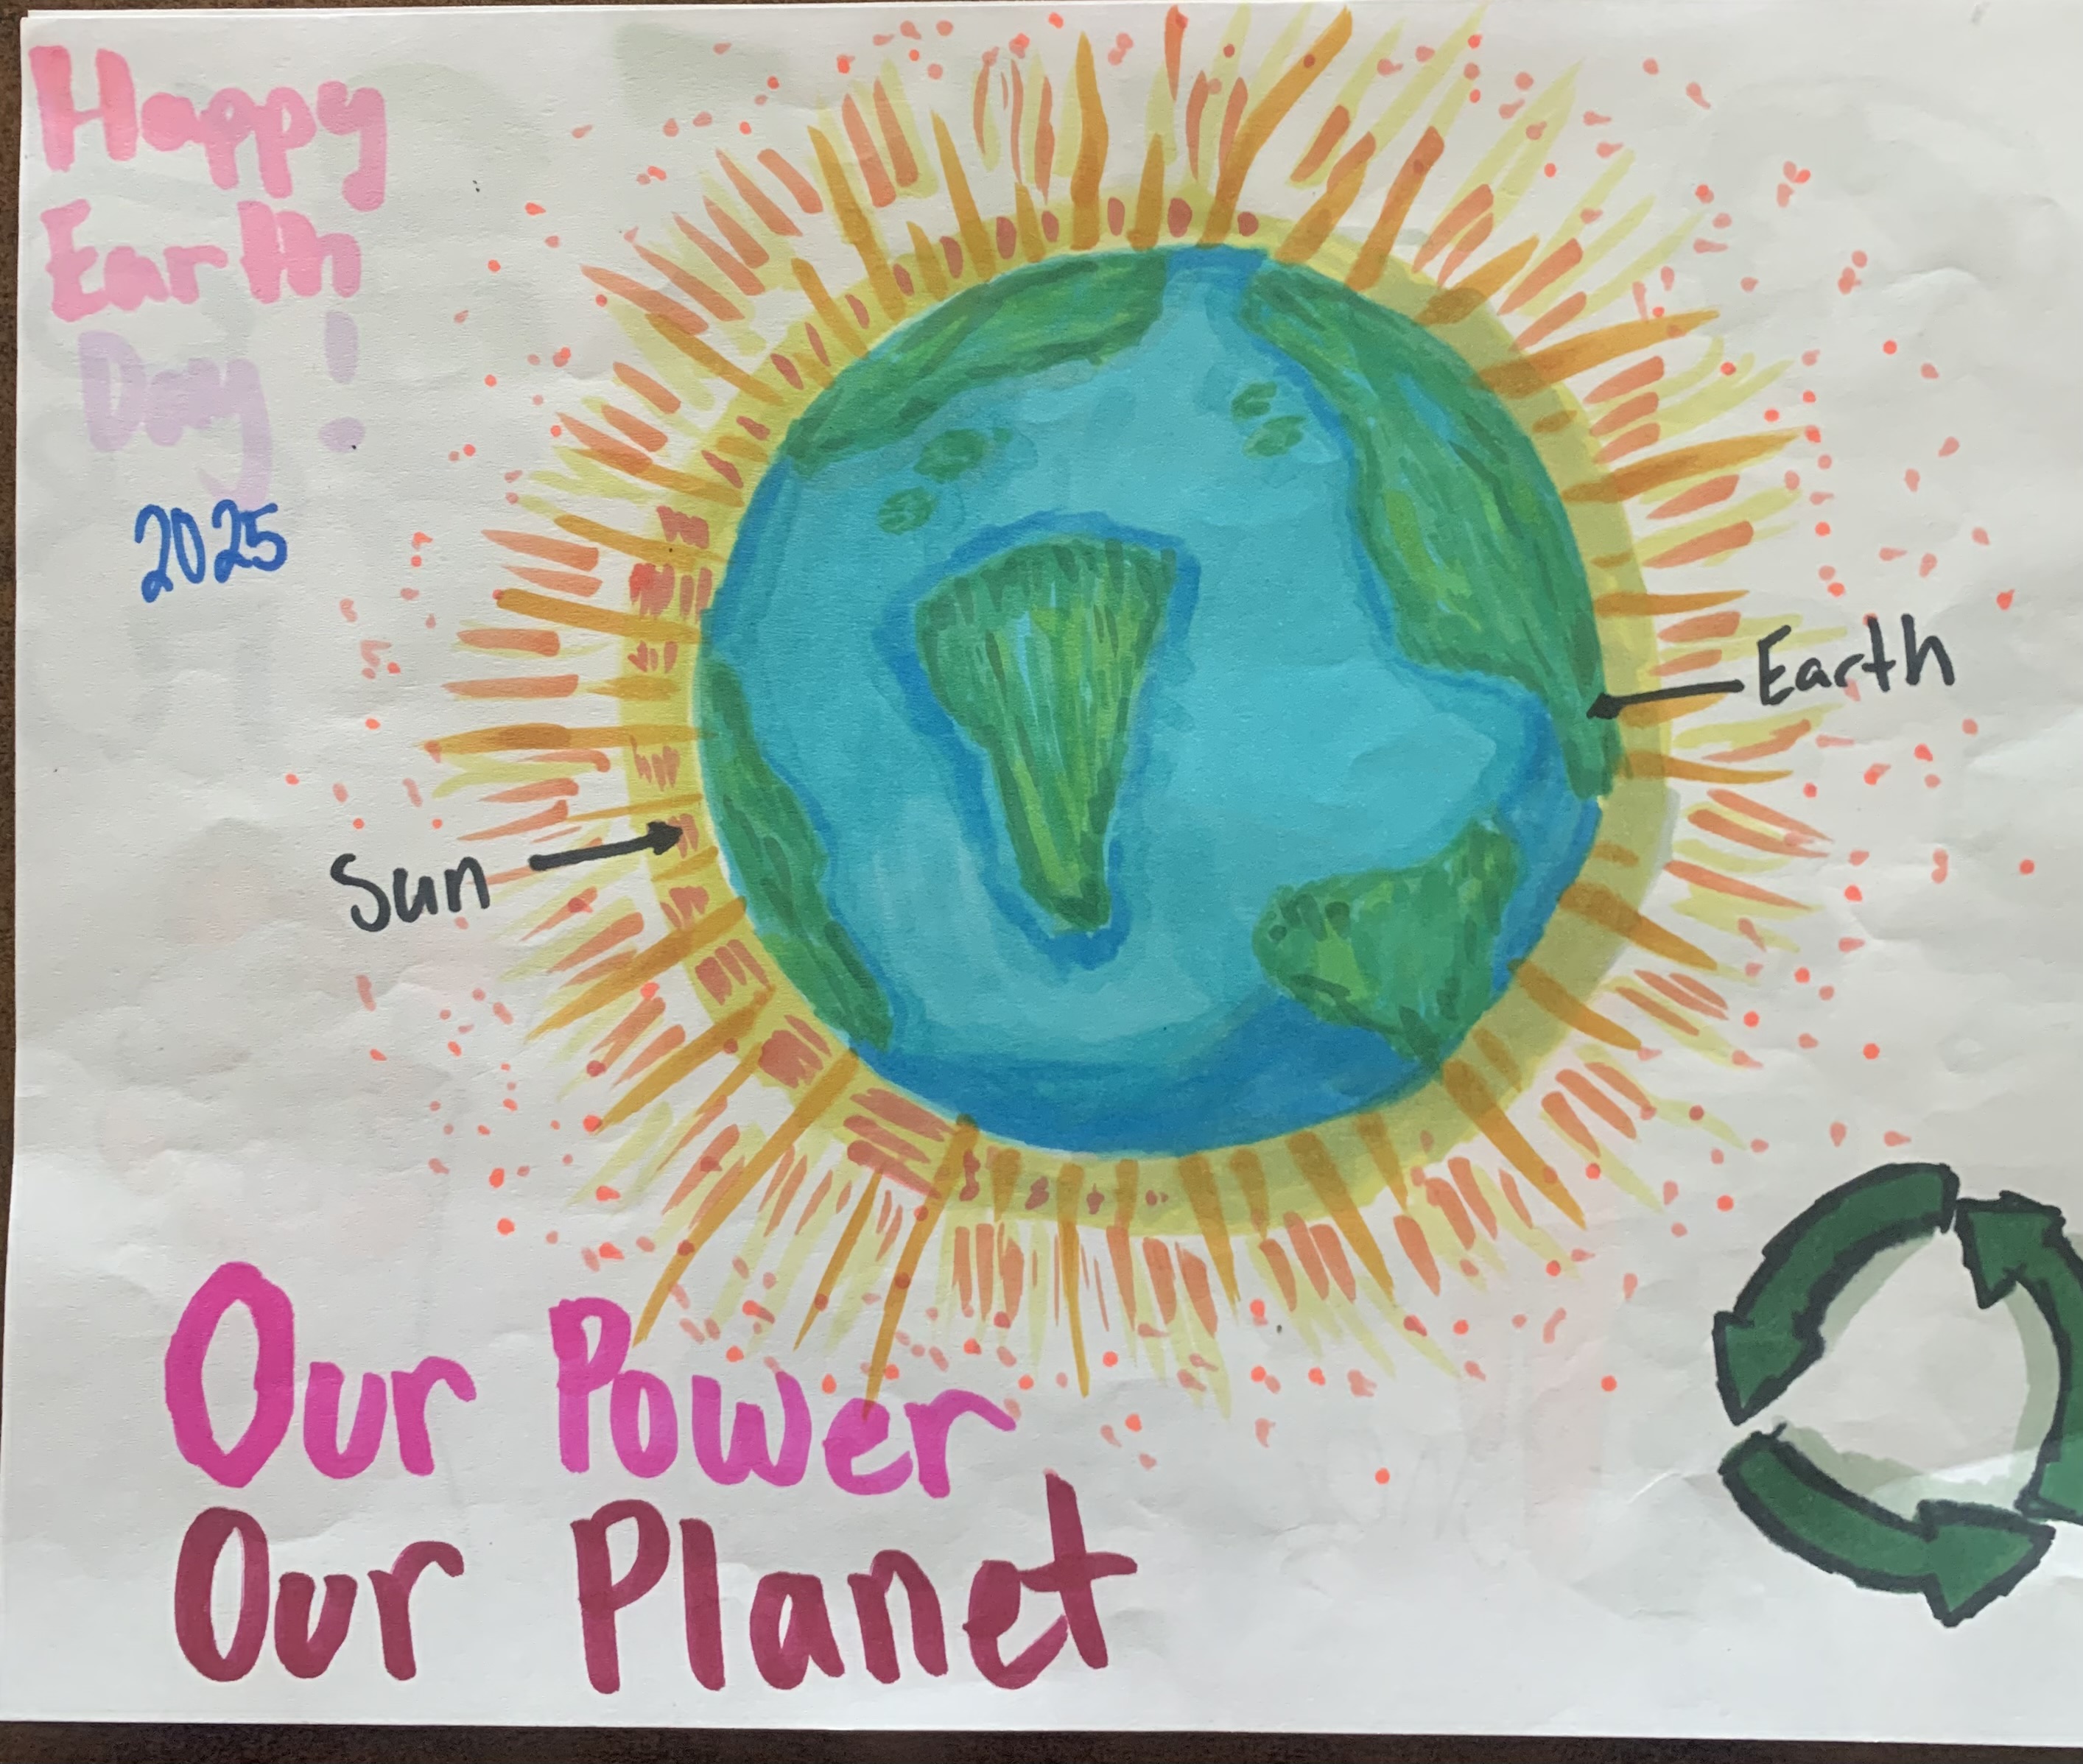 Happy
Earth
Day!
2025
Earth
Sun
Our Power
Our Planet